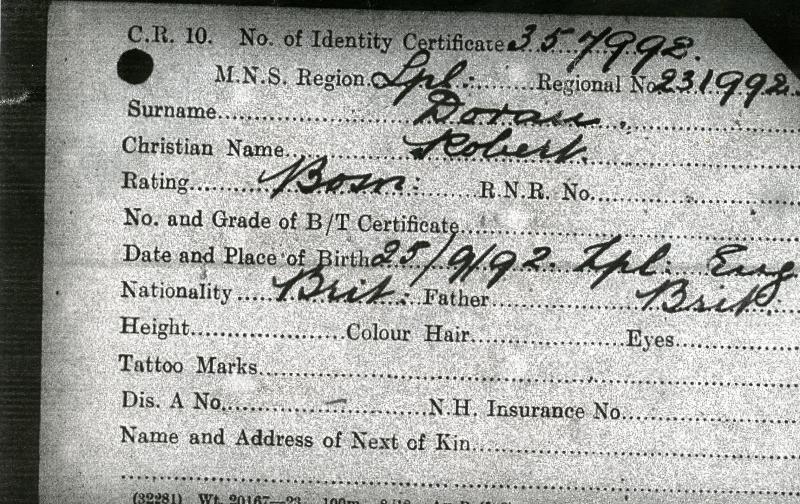 C.R. 10. No. of Identity Certificate 357992.
M.N.S. Region. Lpl: Regional No 231992.
Surname Doran.
Christian Name Robert.
Rating Bosn: R.N.R. No.
No. and Grade of B/T Certificate
Date and Place of Birth 25/9/92. Lpl. Eng
Nationality Brit: Father Brit.
Height Colour Hair Eyes
Tattoo Marks
Dis. A No. – N.H. Insurance No.
Name and Address of Next of Kin
(32281) Wt. 20167—23. 100m.